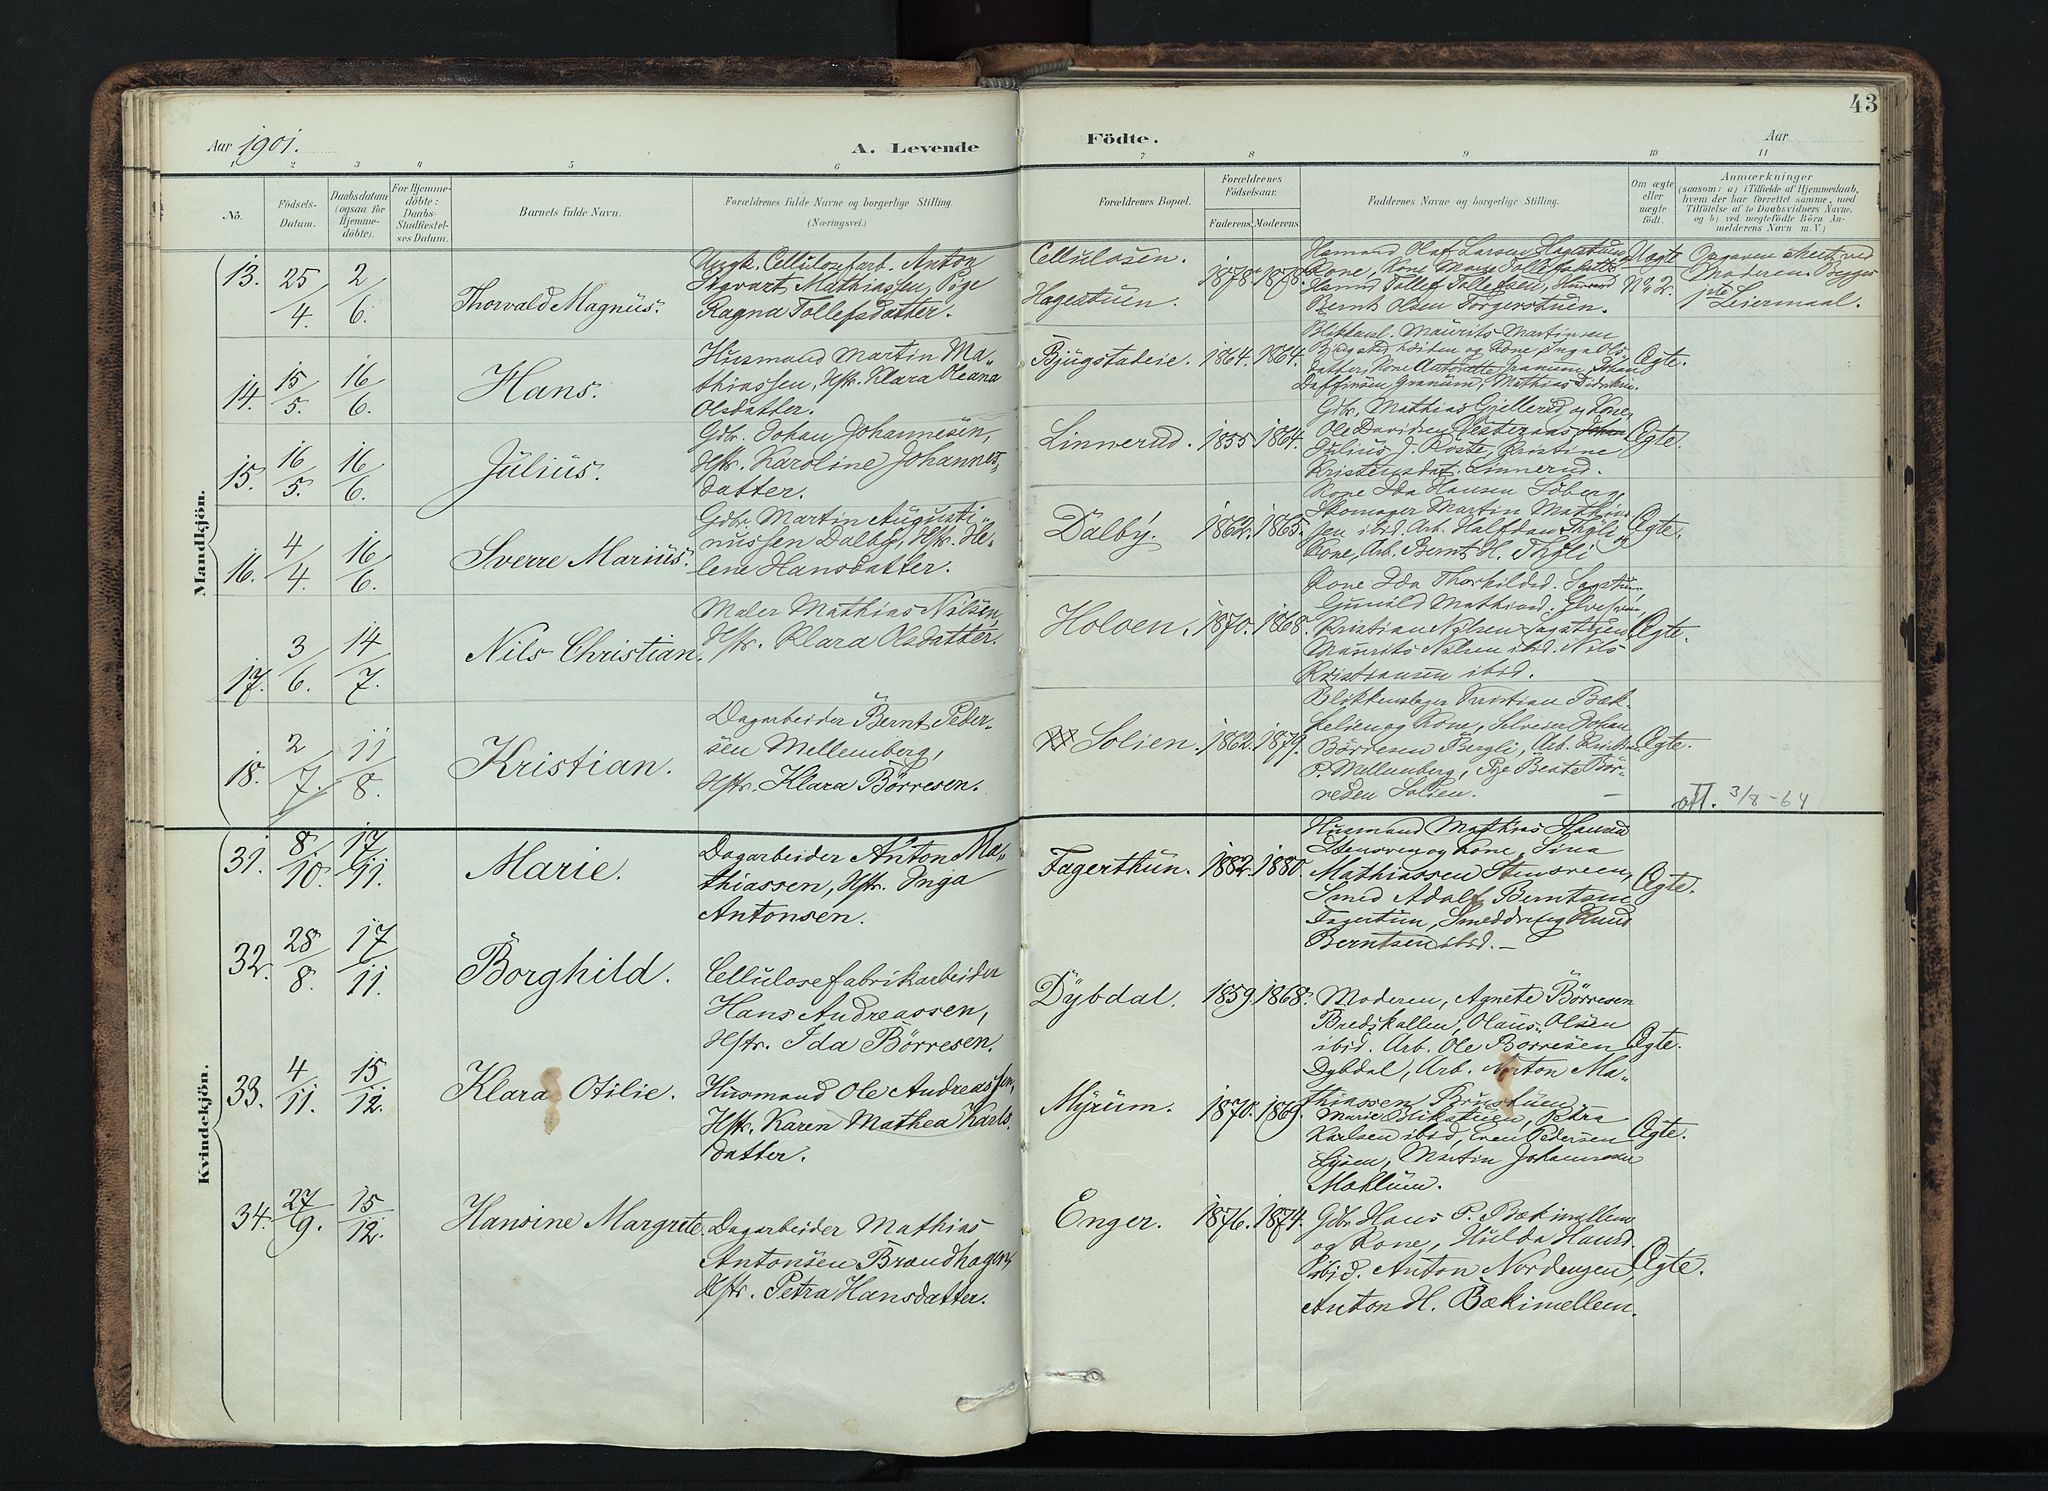 43
Aar 1901.
A. Levende
Födte.
Aar
1 2 3 4 5 6 7 8 9 10 11
No.
Födsels-Datum.
Daabsdatum (ogsaa for Hjemmedöbte).
For Hjemmedöbte: Daabs-Stadfæstelses Datum.
Barnets fulde Navn.
Forældrenes fulde Navne og borgerlige Stilling.
(Næringsvei.)
Forældrenes Bopæl.
Forældrenes Födselsaar.
Faderens. Moderens.
Faddernes Navne og borgerlige Stilling.
Om ægte eller uægte födt.
Anmærkninger
(saasom: a) i Tilfælde af Hjemmedaab,
hvem der har forrettet samme, med
Tilföielse af to Daabsvidners Navne.
og b) ved uægtefödte Börn An-
melderens Navn m. V.)
Mandkjön.
13. 25/4. 2/6. Thorvald Magnus.
Ungk. Cellulosefarb. Anton
Sigvart Mathiassen, Pige
Ragna Tollefsdatter.
Cellulosen.
Hagestuen.
1878. 1878.
Olaf Larsen Hagestuen
Kone, Kone
Tollef Tollefsen,
Bernt Olsen Torgerstuen.
Uægte
No 2.
Opgaven skeet ved
Moderen. Begges
1ste Leiermaal.
14. 15/5. 16/6. Hans.
Husmand Martin Ma-
thiassen, Hstr. Klara Oleana
Olsdatter.
Bjugstadeie. 1864. 1864.
Maurits Martinsen
og Kone, Inga Ols-
datter, Kone Antonette Granum, Johan
Granum, Mathias Didriksen.
Ægte.
15. 16/5. 16/6. Julius.
Gdbr. Johan Johannesen,
Hstr. Karoline Johannes-
datter.
Linnerud. 1855. 1864.
Gdbr. Mathias Gjellerud og Kone,
Ole Davidsen
Julius J. Roste, Kristine
Kristensdat. Linnerud.
Ægte.
16. 4/4. 16/6. Sverre Marius.
Gdbr. Martin Augusti-
nussen Dalby, Hstr. He-
lene Hansdatter.
Dalby. 1862. 1865.
Kone Ida Hansen Söberg,
Skomager Martin Mathias-
sen ibid. Arb. Halfdan Thyli og
Kone, Arb. Bernt H. Thyli
Ægte.
17. 3/6. 14/7. Nils Christian.
Maler Mathias Nilsen,
Hstr. Klara Olsdatter.
Holoen. 1870. 1868.
Kone Ida Thorkildsd. Sagstuen,
Gunild Mathisd.
Kristian Nilsen Sagstuen,
Maurits Nilsen ibid. Nils
Kristiansen ibid.
Ægte.
18. 2/7. 11/8. Kristian.
Dagarbeider Bernt Peder-
sen Mellemberg,
Hstr. Klara Børresen.
Solien. 1862. 1879.
Blikkenslager Kristian Bæk-
kelien og Kone, Selveier Johan
Børresen Bergli, Arb. Kristian
P. Mellemberg, Pige Beate Bør-
resen Solien. —
Ægte.
att. 3/8-64
Kvindekjön.
31. 8/10. 17/11. Marie.
Dagarbeider Anton Ma-
thiassen, Hstr. Inga
Antonsen.
Fagerthun. 1882. 1880.
Husmand Mathias Hansen
Stensveen og Kone, Sina
Mathiassen Stensveen,
Smed Adolf Berntsen
Fagertun, Smeddreng Knud
Berntsen ibid. —
Ægte.
32. 28/8. 17/11. Borghild.
Cellulosefabrikarbeider
Hans Andreassen,
Hstr. Ida Børresen.
Dybdal. 1859. 1868.
Moderen, Agnete Børresen
Bredskallen, Olaus Olsen
ibid. Arb. Ole Børresen
Dybdal, Arb. Anton Ma-
thiassen Brustuen.
Ægte.
33. 4/11. 15/12. Klara Otilie.
Husmand Ole Andreassen,
Hstr. Karen Mathea Karls-
datter.
Myrum. 1870. 1869.
Marie Blikstuen, Petra
Karlsen ibid, Even Pedersen
Lysen, Martin Johannesen
Mæhlum.
Ægte.
34. 27/9. 15/12. Hansine Margrete.
Dagarbeider Mathias
Antonsen Brandhagen,
Hstr. Petra Hansdatter.
Enger. 1876. 1874.
Gdbr Hans P. Bækimellem
og Kone, Hulda Hansd.
ibid. Anton Nordengen,
Anton H. Bækimellem.
Ægte.